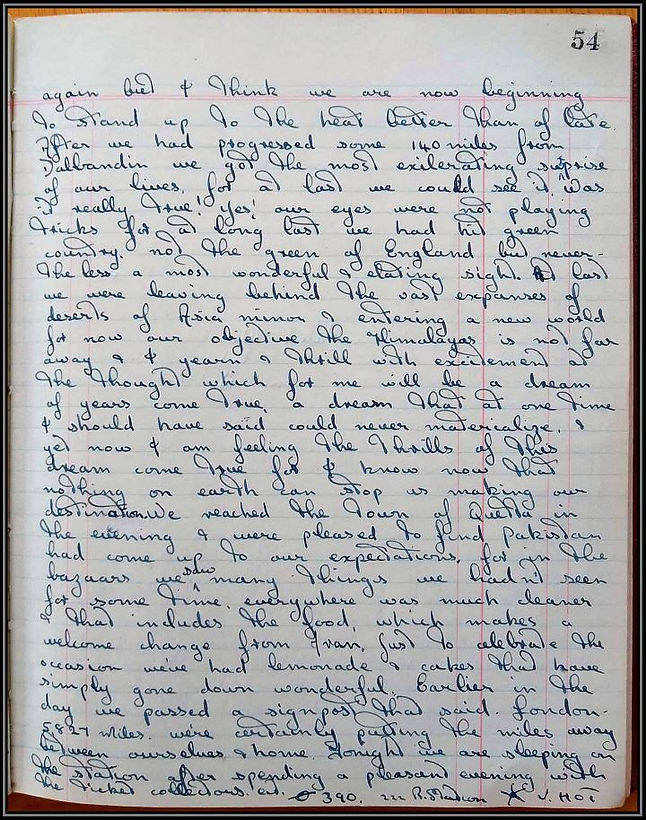 54
again but I think we are now beginning
to stand up to the heat better than of late.
After we had progressed some 140 miles from
Dalbandin we got the most exilerating surprise
of our lives, for at last we could see it, was
it really true! Yes! our eyes were not playing
tricks for at long last we had hit green
country. not the green of England but never-
the-less a most wonderful & elating sight. At last
we were leaving behind the vast expanses of
deserts of Asia minor & entering a new world
for now our objective the Himalayas is not far
away & I yearn & thrill with excitement at
the thought which for me will be a dream
of years come true, a dream that at one time
I should have said could never matericalize, &
yet now I am feeling the thrills of this
dream come true for I know now that
nothing on earth can stop us making our
destination. We reached the town of Quetta in
the evening & were pleased to find Pakistan
had come up to our expectations, for in the
bazaars we saw many things we hadn't seen
for some time, everywhere was much cleaner
& that includes the food, which makes a
welcome change from Iran, just to celebrate the
occasion we've had lemonade & cakes that have
simply gone down wonderful. Earlier in the
day we passed a signpost that said. London.
5,827 miles. were certainly putting the miles away
between ourselves & home. Tonight we are sleeping on
the station after spending a pleasant evening with
the ticket collectors. 390. R. Station V. HOT